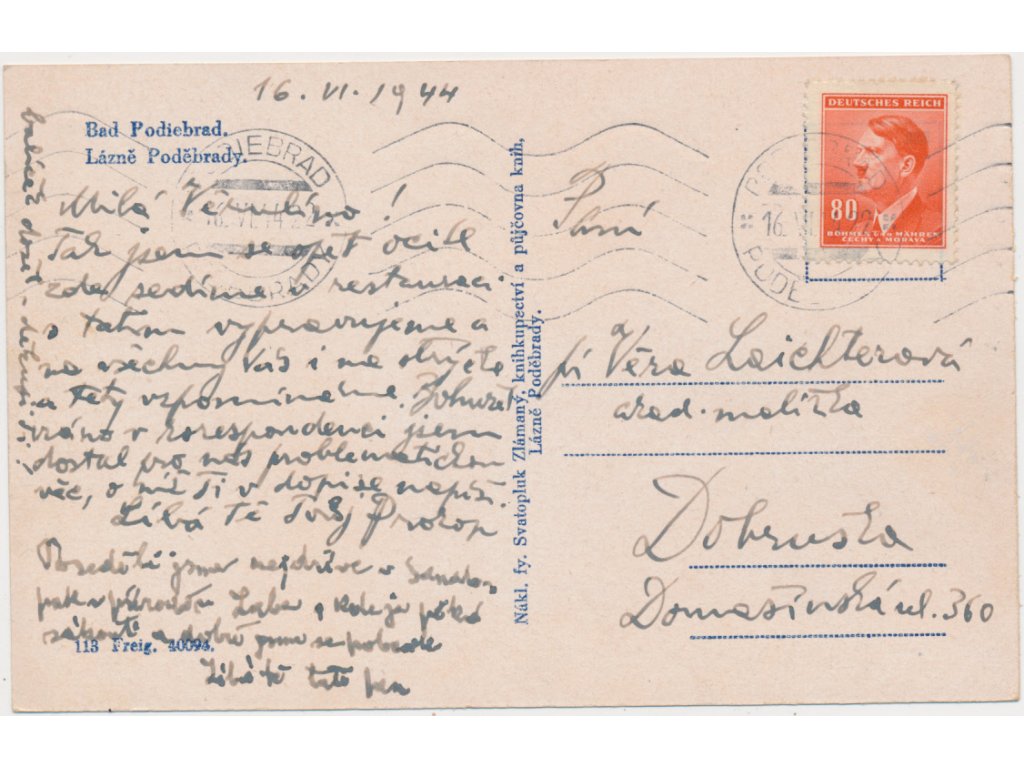 16. VI. 1944
Bad Podiebrad.
Lázně Poděbrady.
Milá Věrulinko!
Tak jsem se opět ocitl
zde sedíme v restauraci
s tatím vypravujeme a
na všechny Vás i na strýce
a tety vzpomínáme. Bohužel
ráno v korespondenci jsem
dostal pro nás problematickou
věc, o níž Ti v dopise napíši.
Líbá Tě Tvůj Prokop
Poseděli jsme nejdříve v
pak v Labe, kde je pěkné
a dobře jsme se
Líbá tě
balíček došel, děkuji
113 Freig. 40094.
Nákl. fy. Svatopluk Zlámaný, knihkupectví a půjčovna knih,
Lázně Poděbrady.
DEUTSCHES REICH
80
BÖHMEN u. MÄHREN
ČECHY a MORAVA
PODIEBRAD
16. VI. 44
Paní
pí Věra Laichterová
akad. malířka
Dobruška
Domašínská ul. 360